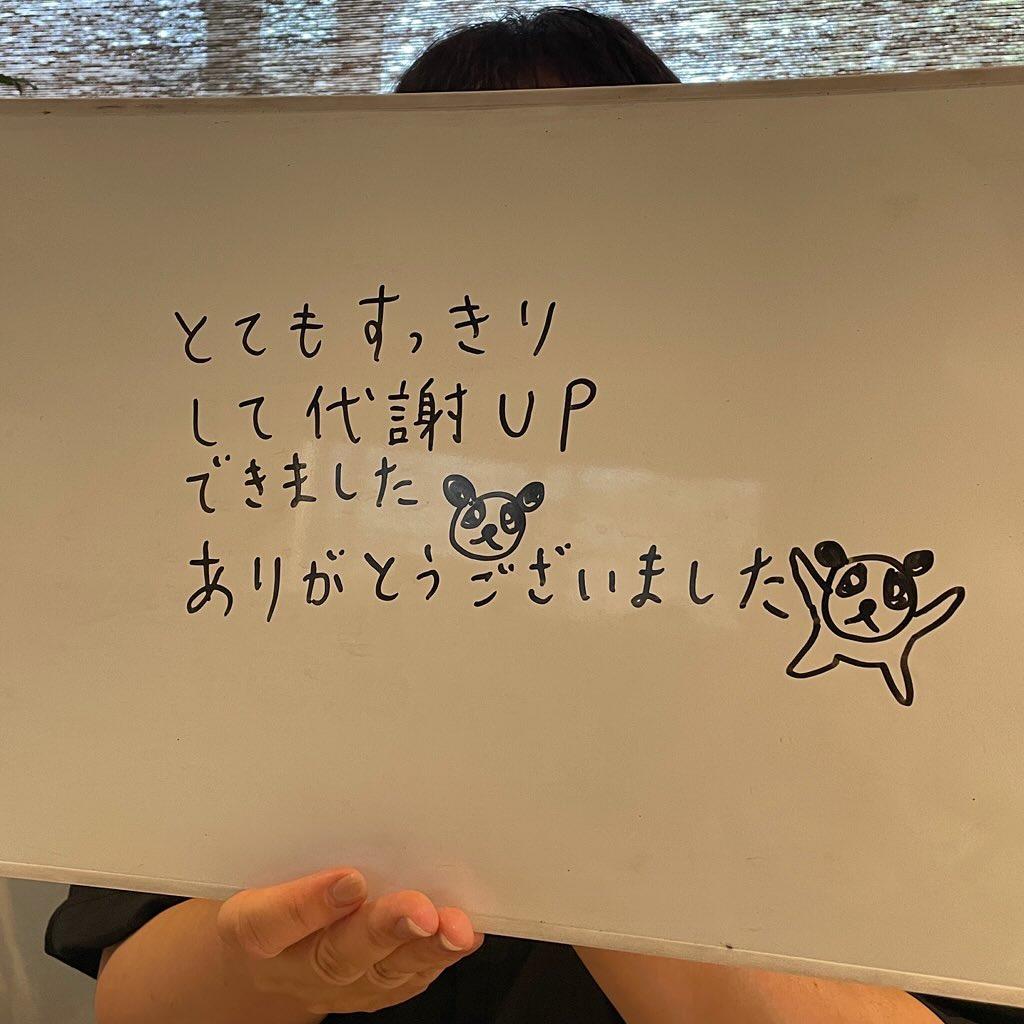 とてもすっきり
して代謝UP
できました
ありがとうございました